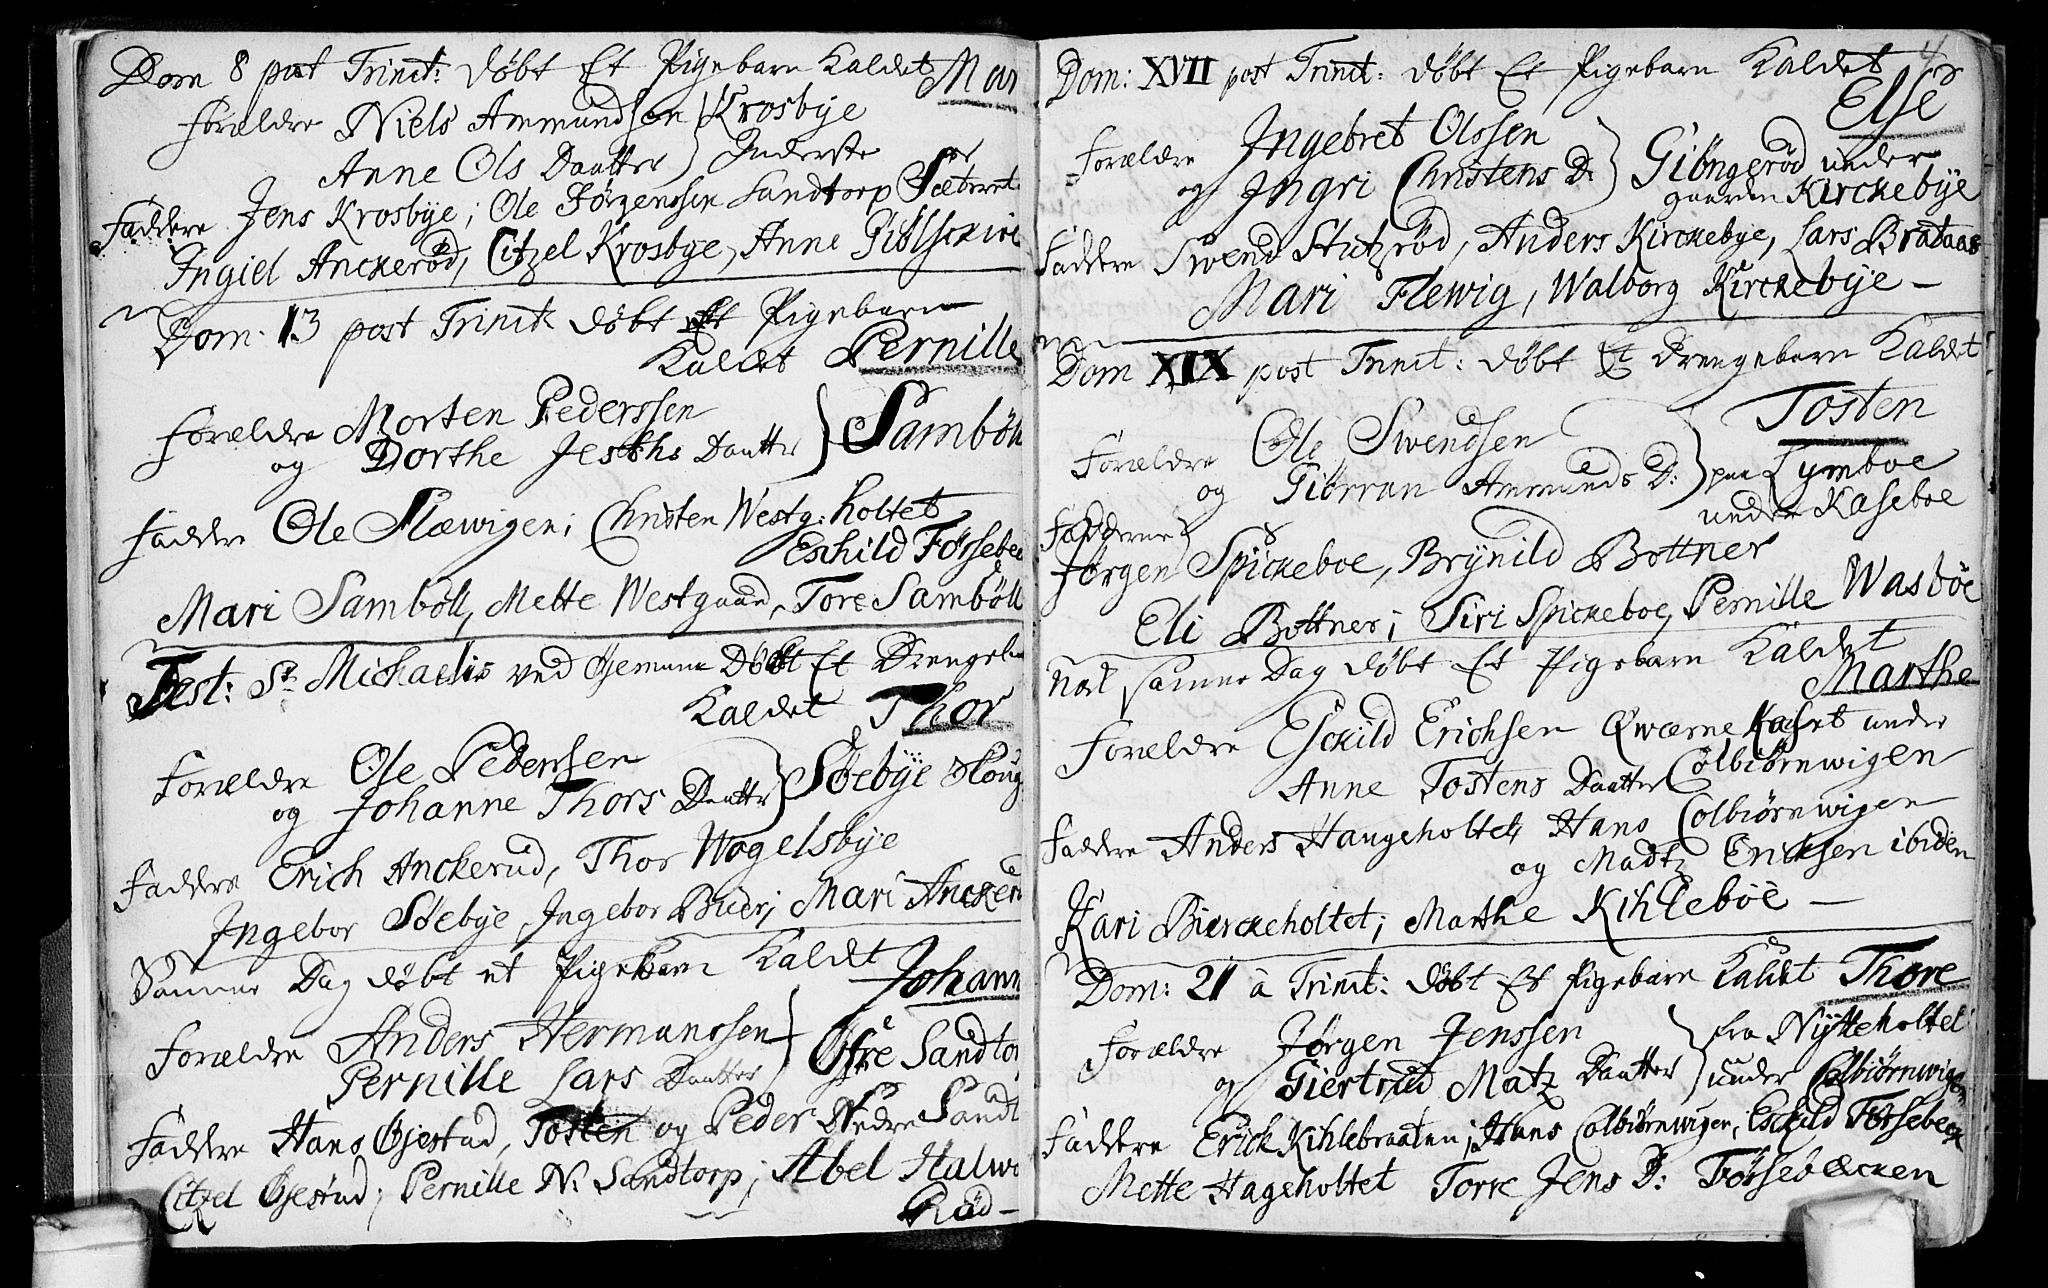 Dom 8 post Trinit: døbt Et Pigebarn Kaldet Mar
Forældre Niels Ammundsen Krosbye
Anne Ols Daatter Inderste
Faddere Jens Krosbye; Ole Jørgenssen Sandtorp Sæteret
Ingiel Anckerød, Citzel Krosbye, Anne
Dom. 13 post Trinit: døbt Et Pigebarn
Kaldet Pernille
Forældre Morten Pederssen Sambøll
og Dorthe Daatter
Faddere Ole Slæwigen; Christen Westg: holtet
Eskild Førsebec
Mari Sambøll, Mette Westgaard, Tore Sambøll
Fest: St Michaelis ved Hjemme Døbt Et Drengeb
Kaldet Thor
Forældre Ole Pederssen Søebye Houg
og Johanne Thors Daatter
Faddere Erich Anckerud, Thor Wogelsbye
Ingebor Søebye, Ingebor Buer; Mari Ancker
Samme Dag døbt et Pigebarn Kaldt Johann
Forældre Anders Hermanssen Øfre Sandtor
Pernille Lars Daatter
Faddere Hans Gjestad, Tosten og Peder Nedre Sandt
Citzel Gjestad; Pernille N: Sandtorp; Abel Halwo
Rød
4
Dom: XVII post Trinit: døbt Et Pigebarn Kaldet
Else
Forældre Ingebret Olssen Giöngerød under
og Ingri Christens D: gaarden Kirckebye
Faddere Swend Stutzrød, Anders Kirckebye, Lars Brataas
Mari Flewig, Walborg Kirckebye
Dom XIX post Trinit: døbt Et Drengebarn Kaldet
Tosten
Forældre Ole Swendsen paa Lymboe
og Giörran Ammunds D: under Kaseboe
Fadderne
Jørgen Spickeboe, Brynild Bottner
Eli Bottner; Siri Spickeboe, Pernille Wasböe
Nok samme Dag døbt Et Pigebarn Kaldet
Marthe
Forældre Eschild Erichsen Qwærne Kaset under
Anne Tostens Daatter Colbiørnwigen
Faddere Anders Haugeholtet, Hans Colbiørnwigen
og Madtz Erichsen ibidem
Kari Bierckeholtet; Marthe Kihleböe
Dom: 21 à Trinit: døbt Et Pigebarn Kaldet Thore
Forældre Jørgen Jenssen fra Nytteholtet
og Giertrud Matz Daatter under Colbiørnwigen
Faddere Erick Kihlebraaten; Hans Colbiørnwigen; Eschild Førsebeck
Mette Hageholtet Torre Jens D: Førsebæcken